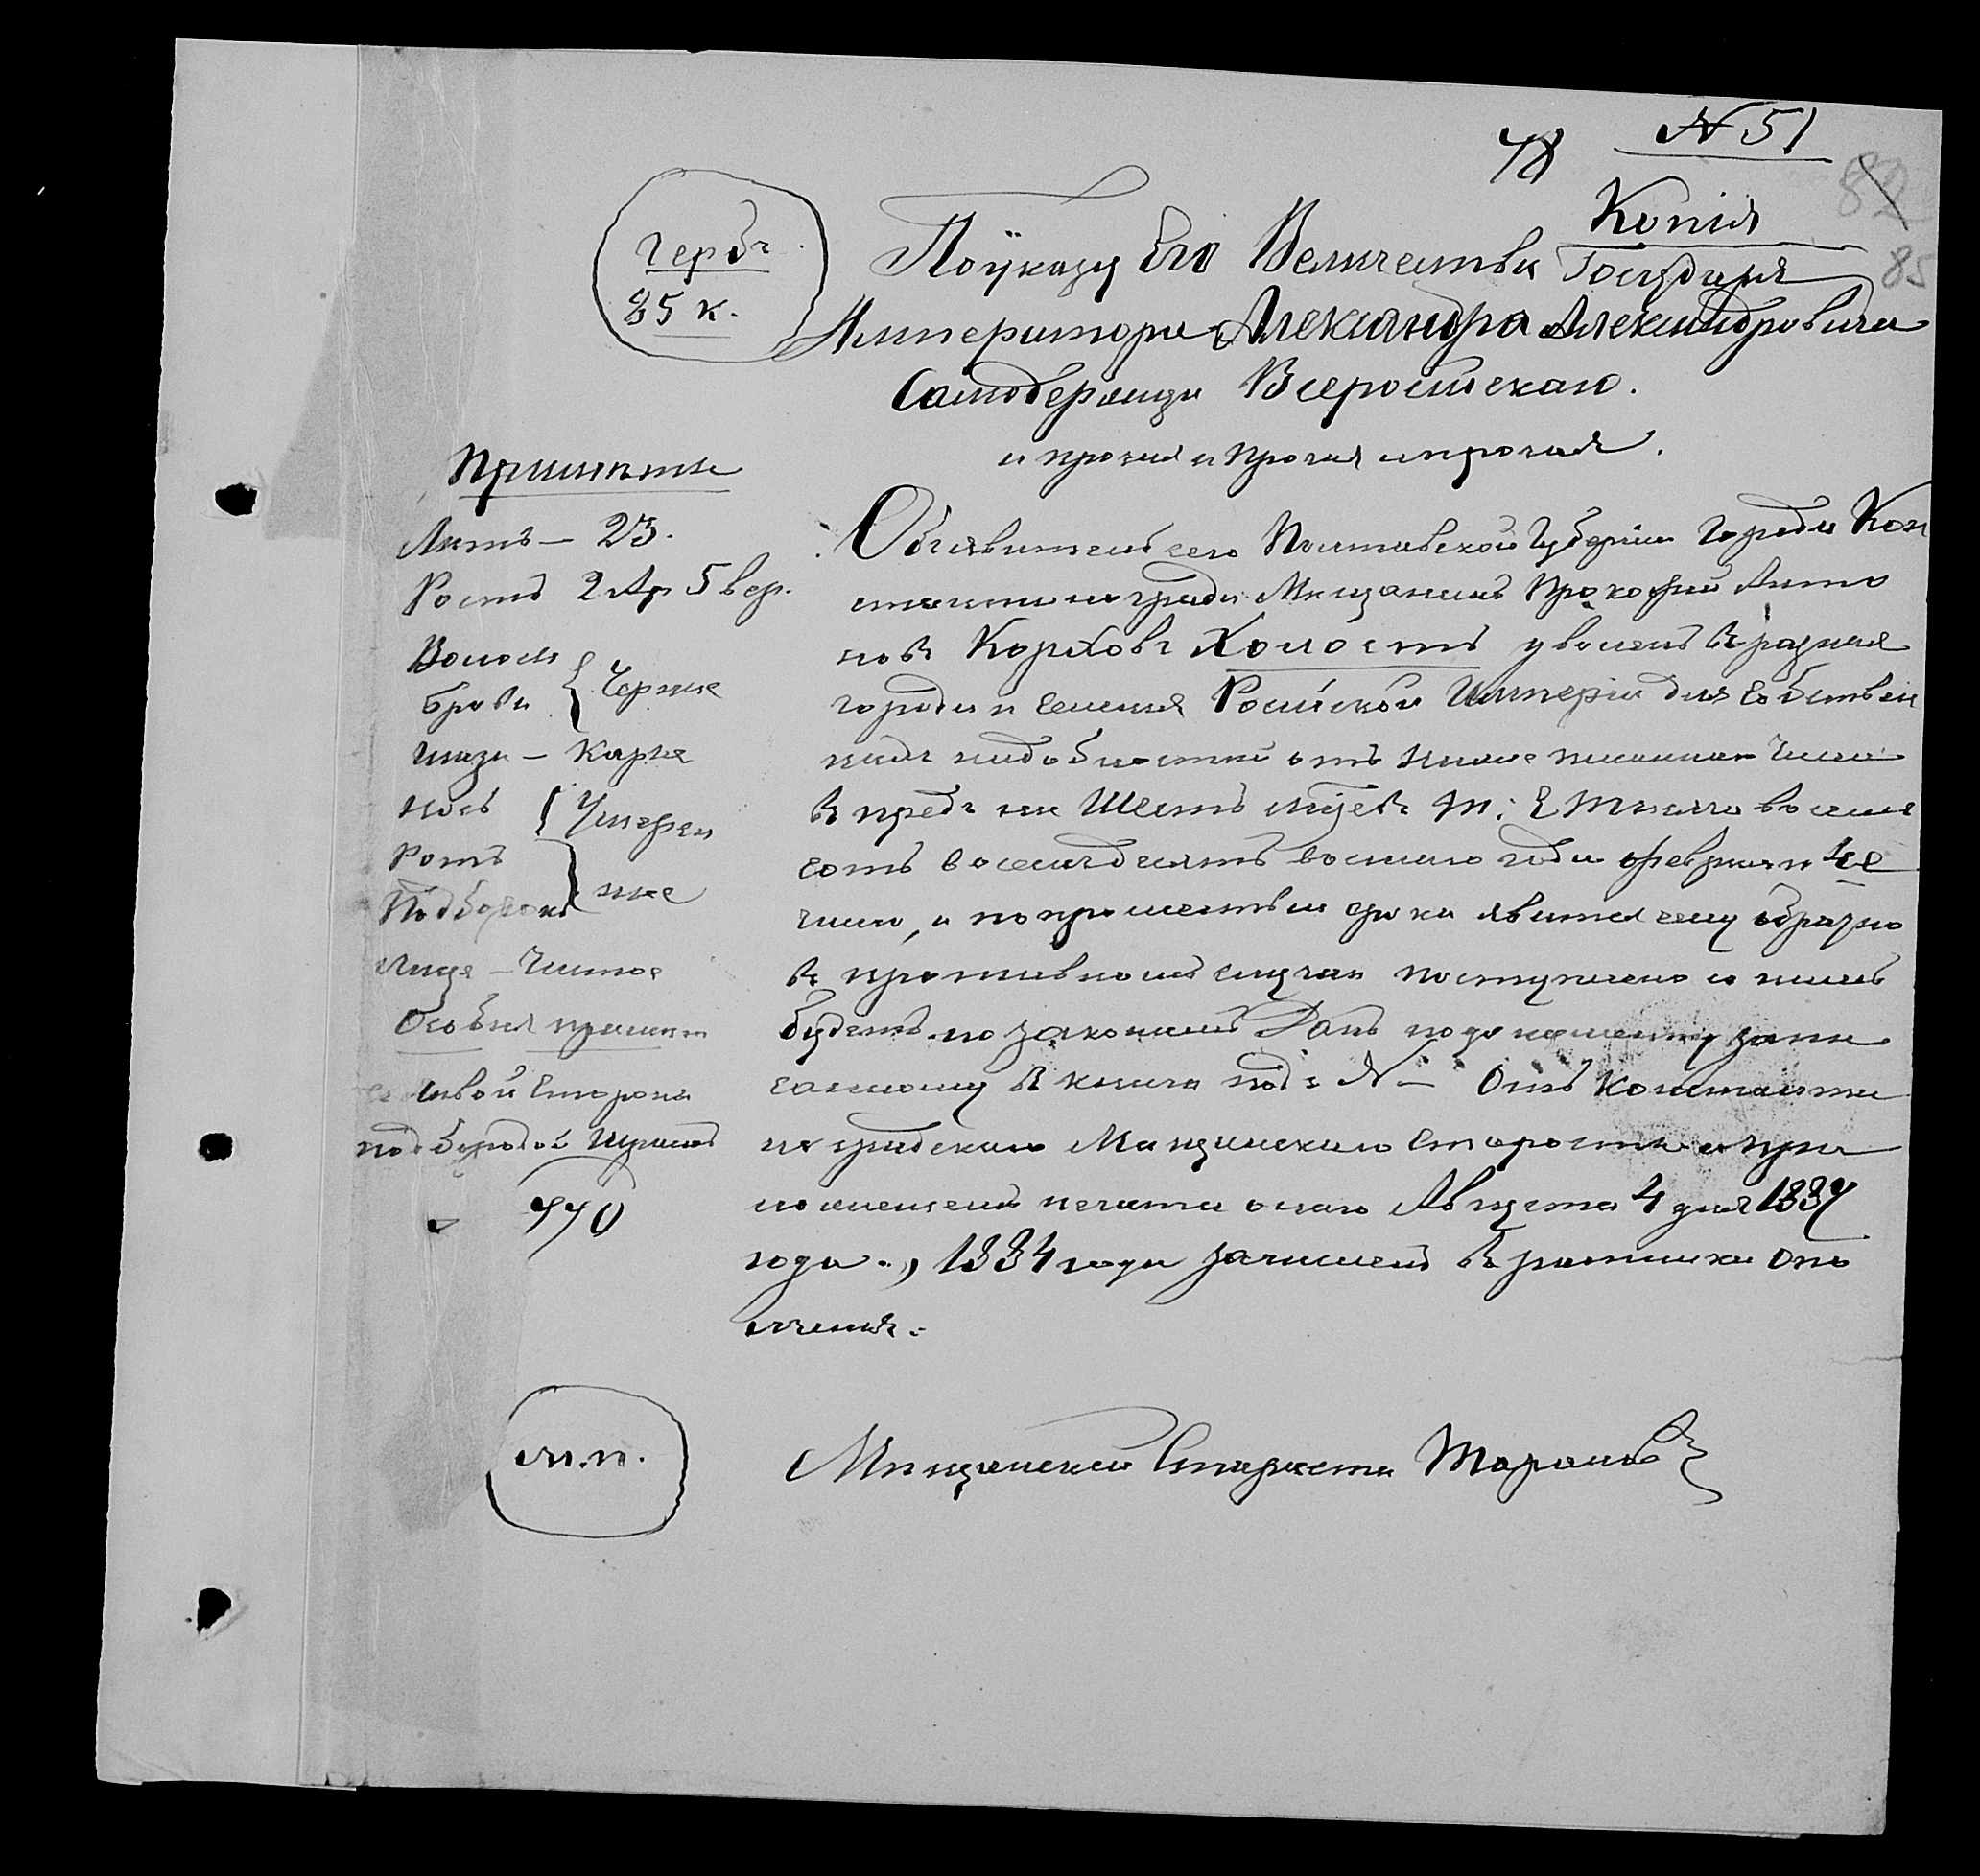 N 51
Копія
82
85
Гербъ
85 к.
По указу Его Величества Государя
Императора Александра Александровича
Самодержца Всеросійскаго.
и прочая и прочая и прочая.
Примѣты
Лѣтъ – 23.
Ростъ 2 Ар 5 вер.
Волосы
брови } Черные
глаза – Каріе
Носъ
Ротъ } Умѣрен
Подбородокъ } ные
Лице – Чистое
Особыя примѣты
съ лѣвой стороны
подъ бородой Шрамъ
770
Объявитель сего Полтавской Губерніи Города Кон
стантинограда Мѣщанинъ Прокофій Анто
новъ Коржовъ Холостъ уволенъ въ разные
города и селенія Россійской Имперіи для собствен
ныхъ надобностей отъ ниже писаннаго числа
въ предь на Шесть м-цевъ т: е Тысяча восемь
сотъ восемьдесятъ восьмаго года февраля 4е
число, и по прошествіи срока явится ему обратно
въ противномъ случаѣ поступлено съ нимъ
будетъ по законамъ Данъ по документу запи
санному въ книгѣ подъ N – Отъ Константи
ноградскаго Мѣщанскаго Старосты съ при
ложеніемъ печати онаго Августа 4 дня 1887
года., 1884 года зачисленъ въ ратники опо
лченія.
м.п.
Мѣщанскій Староста Тарановъ